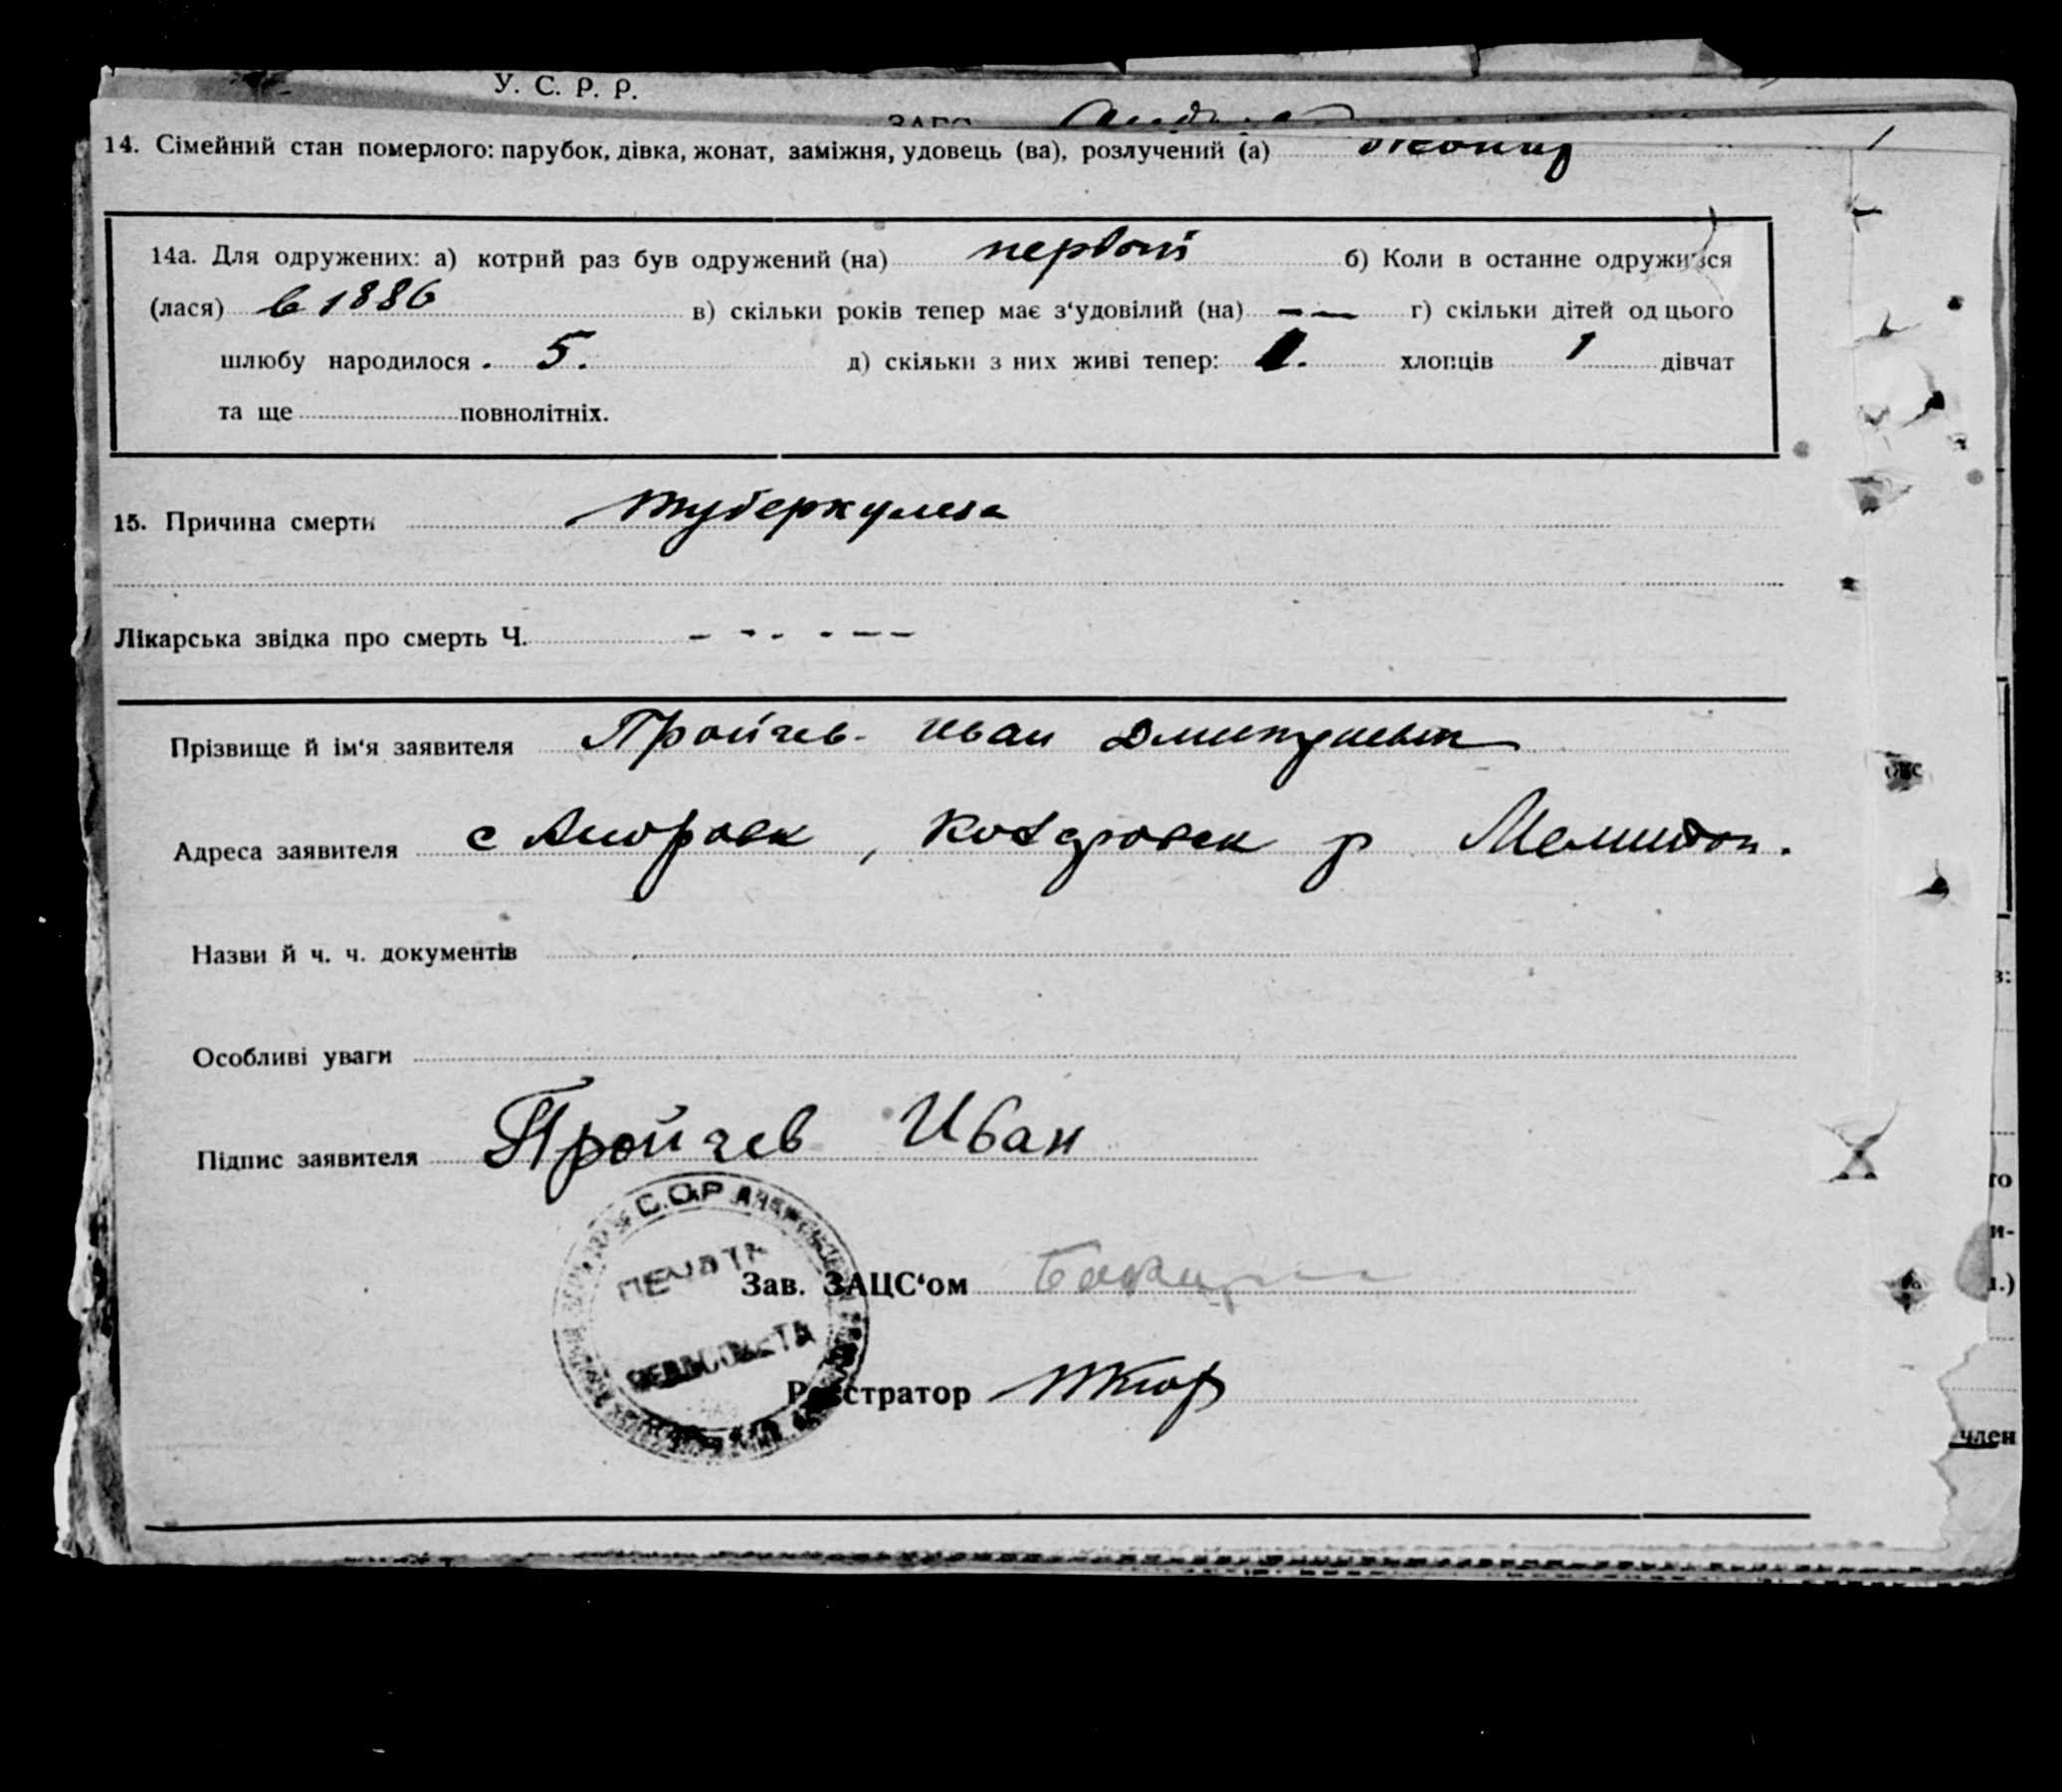 У. С. Р. Р.
ЗАГС
14. Сімейний стан померлого: парубок, дівка, жонат, заміжня, удовець (ва), розлучений (а)
14а. Для одружених: а) котрий раз був одружений (на) первой б) Коли в останне одружився
(лася) в 1886 в) скільки років тепер має з‘удовілий (на) — — г) скільки дітей од цього
шлюбу народилося . 5. д) скільки з них живі тепер: 1. хлопців 1 дівчат
та ще повнолітніх.
15. Причина смерти туберкулеза
Лікарська звідка про смерть Ч. - - - - - -
Прізвище й ім‘я заявителя Пройчев Иван Дмитриевич
Адреса заявителя с , р Мелитоп.
Назви й ч. ч. документів
Особливі уваги
Підпис заявителя Пройчев Иван
С.С.Р
ПЕЧАТЬ
Зав. ЗАЦС‘ом
СЕЛЬСОВЕТА
Реєстратор
член